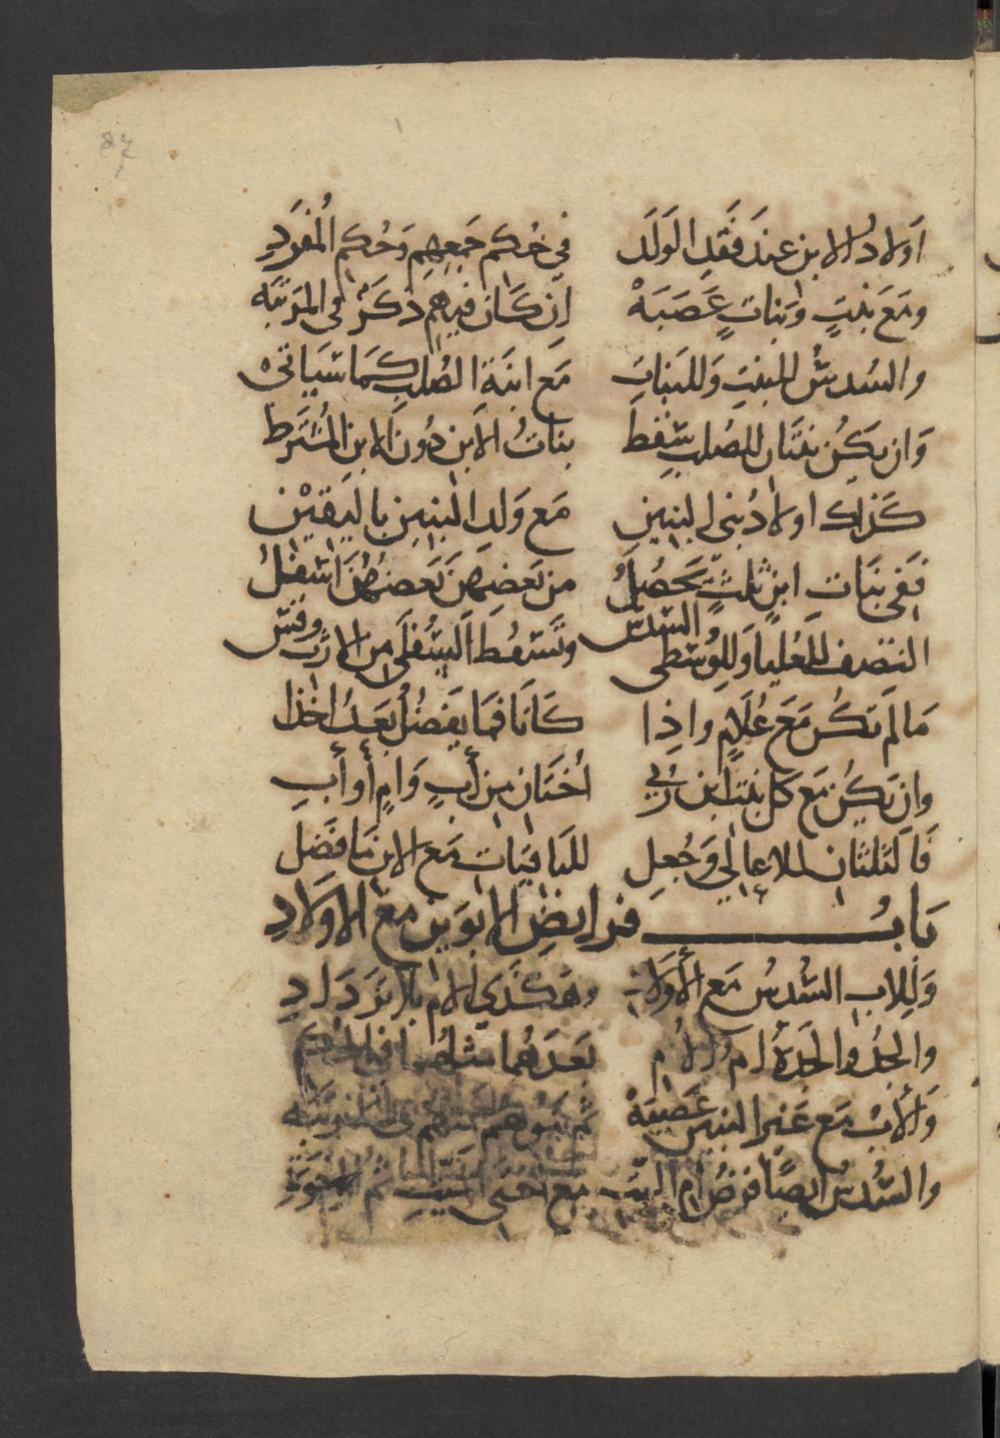 اَولادُ الابن عندَ فَقَدِ الوَلَد في حُكم جَمعِهِم وَحُكمِ المُفرَدِ
ومَعَ بنتٍ وبَناتٍ عَصَبَهْ اِن كَانَ فيهِم ذكَرٌ في المَرتَبَه
والسُدسُ للبنتِ وَللبَناتِ مَع ابنَة الصُلبِ كَمَا سَيَاتي
وَان يَكُن بنتَان للصُلبِ سَقط بناتُ الابن دُونَ الابن المُشتَرط
كَذلك اولادُ بَني البنينِ مَع وَلدِ البَنين باليَقيْن
فَفي بَنَاتِ ابنٍ ثلثٌ يَحصُلُ من بَعضهنّ بَعضهُنَّ اسفلُ
النصف للعُليا وَللوُسطى السُدسُ وتَسقُط السُفلَى من الارثِ وقس
مَا لَم تكُن مَعَ غُلَامٍ واذِا كَانَا فمَا يفضُلُ بَعدُ اخذا
وان يَكُن مَع كل بنتَ ابن رُبي اُختَان مِن أبٍ وَامٍ أو أبِ
فَالثلثان للاعالي وَجُعِل للبَاقيَات مَع الابن مَا فَضَل
بَابُ فرايضِ الابوَين مَع الاولَادِ
وَللاب السُدسُ مَع الأولَاد وهَكذَى الام بلا تردَادِ
والجدُ والجَدةُ ام الام بَعدَهُما مثلهُما في الحُكم
وَالأبُ مَع غَير البنينَ عَصَبَهْ ثم بَنوهم
والسُدسُ ايضًا فرضُ ام الميّت مَع اختَى الميّتِ ثُمّ الاخوَةِ